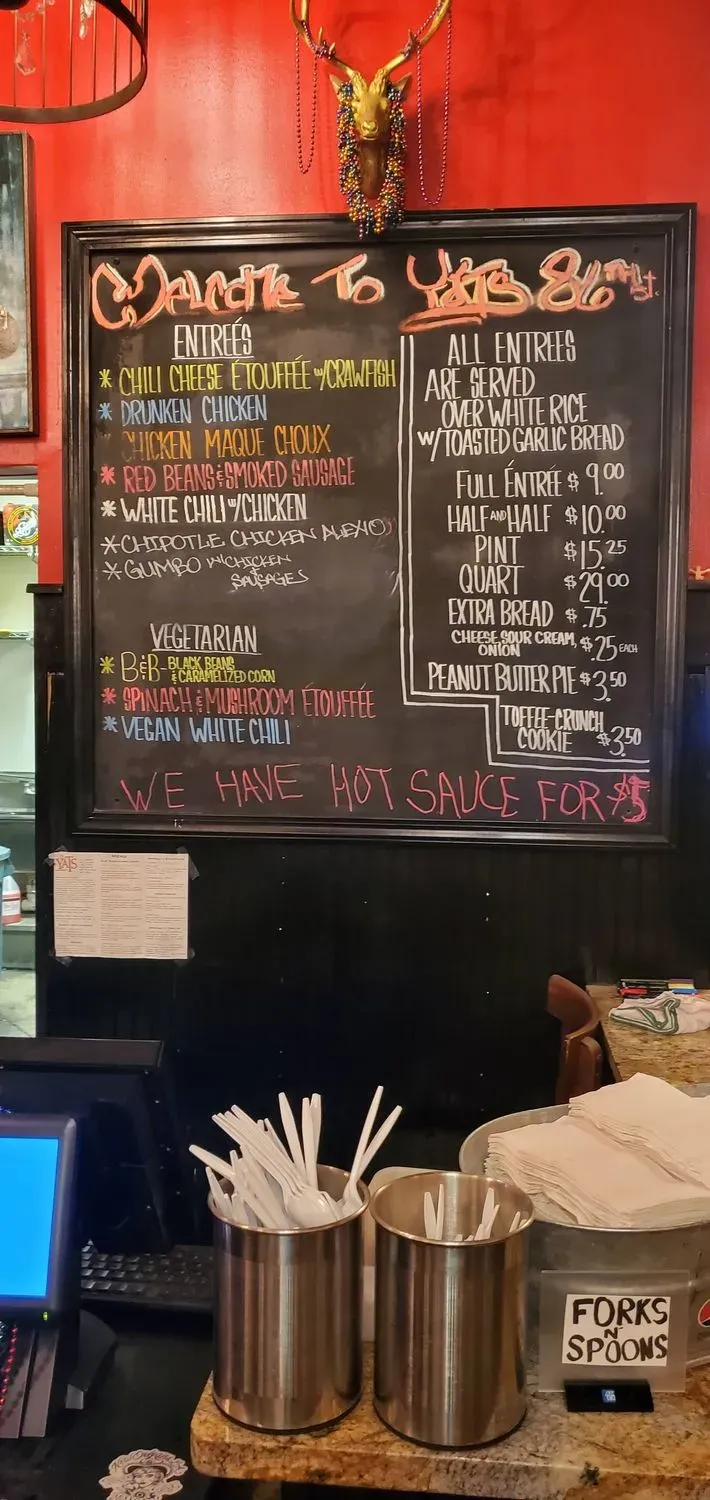 Welcome To Yats 86TH St.
ENTREÉS
* CHILI CHEESE ÉTOUFFÉE W/CRAWFISH
* DRUNKEN CHICKEN
CHICKEN MAQUE CHOUX
* RED BEANS & SMOKED SAUSAGE
* WHITE CHILI W/CHICKEN
* CHIPOTLE CHICKEN ALEXIO
* GUMBO W/CHICKEN
& SAUSAGES
VEGETARIAN
* B&B- BLACK BEANS
& CARAMELIZED CORN
* SPINACH & MUSHROOM ÉTOUFFÉE
* VEGAN WHITE CHILI
ALL ENTREES
ARE SERVED
OVER WHITE RICE
W/TOASTED GARLIC BREAD
FULL ÉNTRÉE $9.00
HALF AND HALF $10.00
PINT $15.25
QUART $29.00
EXTRA BREAD $.75
CHEESE, SOUR CREAM,
ONION $.25 EACH
PEANUT BUTTER PIE $3.50
TOFFEE-CRUNCH
COOKIE $3.50
WE HAVE HOT SAUCE FOR $5
YATS
FORKS
N'
SPOONS